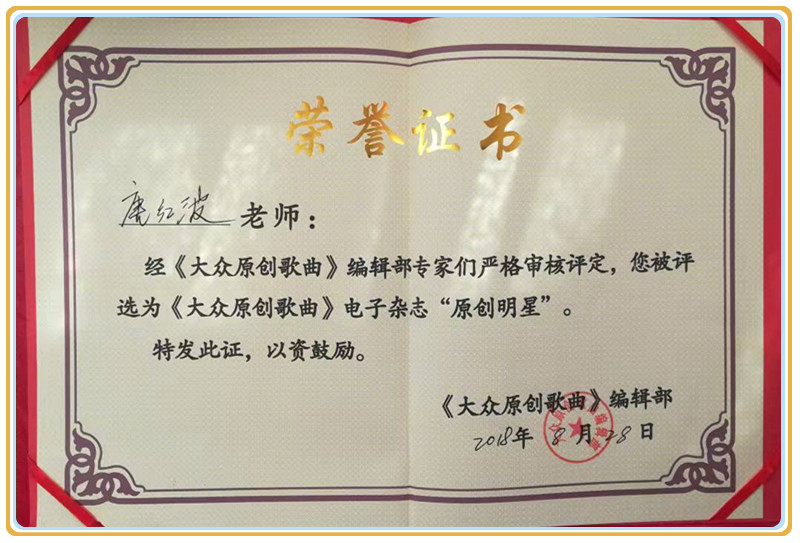 荣誉证书
唐红波老师：
经《大众原创歌曲》编辑部专家们严格审核评定，您被评
选为《大众原创歌曲》电子杂志“原创明星”。
特发此证，以资鼓励。
《大众原创歌曲》编辑部
2018年8月28日